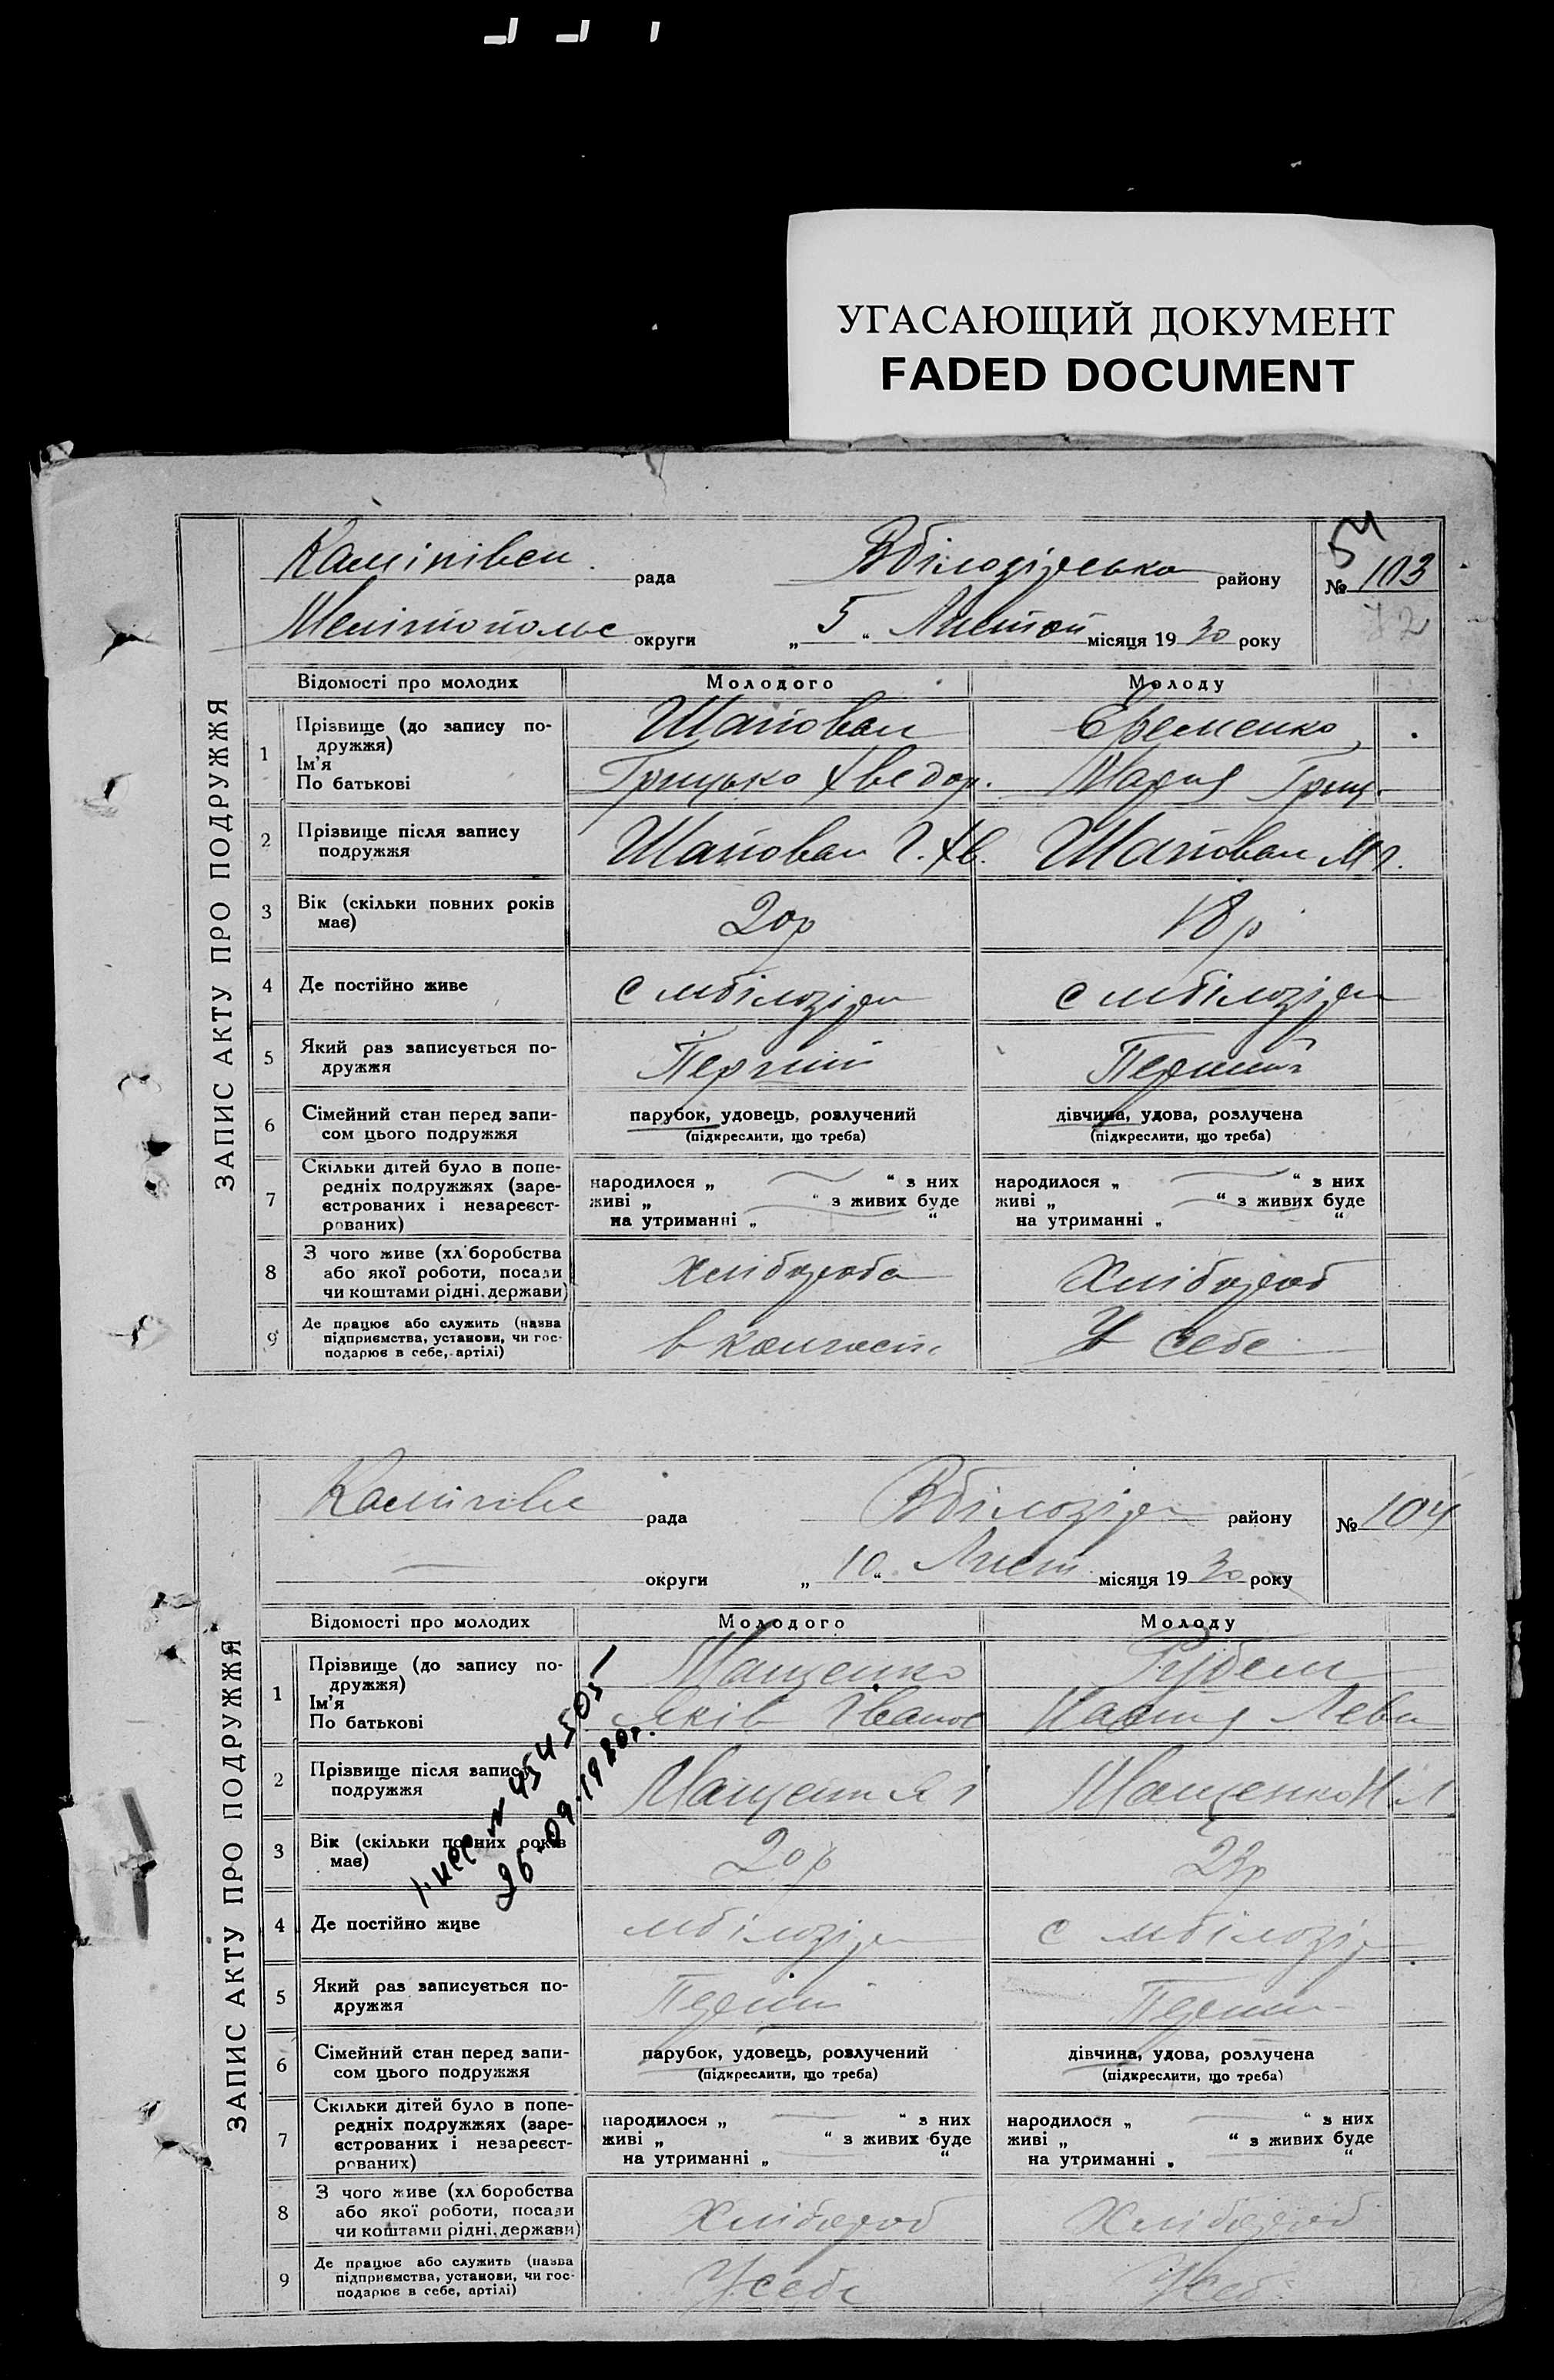 УГАСАЮЩИЙ ДОКУМЕНТ
FADED DOCUMENT
ЗАПИС АКТУ ПРО ПОДРУЖЖЯ
рада району № 103
54
округи „ 5 “ місяця 19 30 року
Відомості про молодих Молодого Молоду
1 Прізвище (до запису по-
дружжя)
Ім’я
По батькові
Шаповал Еременко
Грицько Хведор. Мария Гриц.
2 Прізвище після запису
подружжя
Шаповал Г. Хв. Шаповал М Г.
3 Вік (скільки повних років
має)
20 р 18 р
4 Де постійно живе
с мбілозірк с мбілозірк
5 Який раз записується по-
дружжя
Перший Перший
6 Сімейний стан перед запи-
сом цього подружжя
парубок, удовець, розлучений дівчина, удова, розлучена
(підкреслити, що треба) (підкреслити, що треба)
7 Скільки дітей було в попе-
редніх подружжях (заре-
єстрованих і незареєст-
рованих)
народилося „ “ з них народилося „ “ з них
живі „ “ з живих буде живі „ “ з живих буде
на утриманні „ “ на утриманні „ “
8 З чого живе (хліборобства
або якої роботи, посади
чи коштами рідні, держави)
Хлібороб Хлібороб
9 Де працює або служить (назва
підприємства, установи, чи гос-
подарює в себе, артілі)
У себе
ЗАПИС АКТУ ПРО ПОДРУЖЖЯ
рада району № 104
округи „ 10 “ Лист місяця 19 30 року
Відомості про молодих Молодого Молоду
1 Прізвище (до запису по-
дружжя)
Ім’я
По батькові
Мащенко
Яків Іванов
2 Прізвище після запису
подружжя
Мащенко
3 Вік (скільки повних років
має)
20 р 23 р
26.09.1980г.
4 Де постійно живе
мбілозірк с мбілозір
5 Який раз записується по-
дружжя
Перший Перши
6 Сімейний стан перед запи-
сом цього подружжя
парубок, удовець, розлучений дівчина, удова, розлучена
(підкреслити, що треба) (підкреслити, що треба)
7 Скільки дітей було в попе-
редніх подружжях (заре-
єстрованих і незареєст-
рованих)
народилося „ “ з них народилося „ “ з них
живі „ “ з живих буде живі „ “ з живих буде
на утриманні „ “ на утриманні „ “
8 З чого живе (хліборобства
або якої роботи, посади
чи коштами рідні, держави)
Хлібороб Хлібороб
9 Де працює або служить (назва
підприємства, установи, чи гос-
подарює в себе, артілі)
У себе У себе